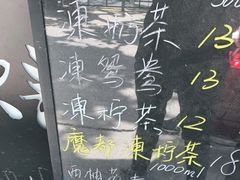 凍奶茶 13
凍鴛鴦 13
凍柠茶 12
魔都凍柠茶 18
1000ml
西柚